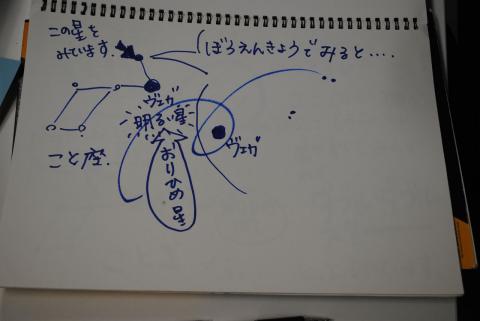 この星を
みています。
ぼうえんきょうでみると....
ヴェガ
明るい星
こと座.
おりひめ星
ヴェガ